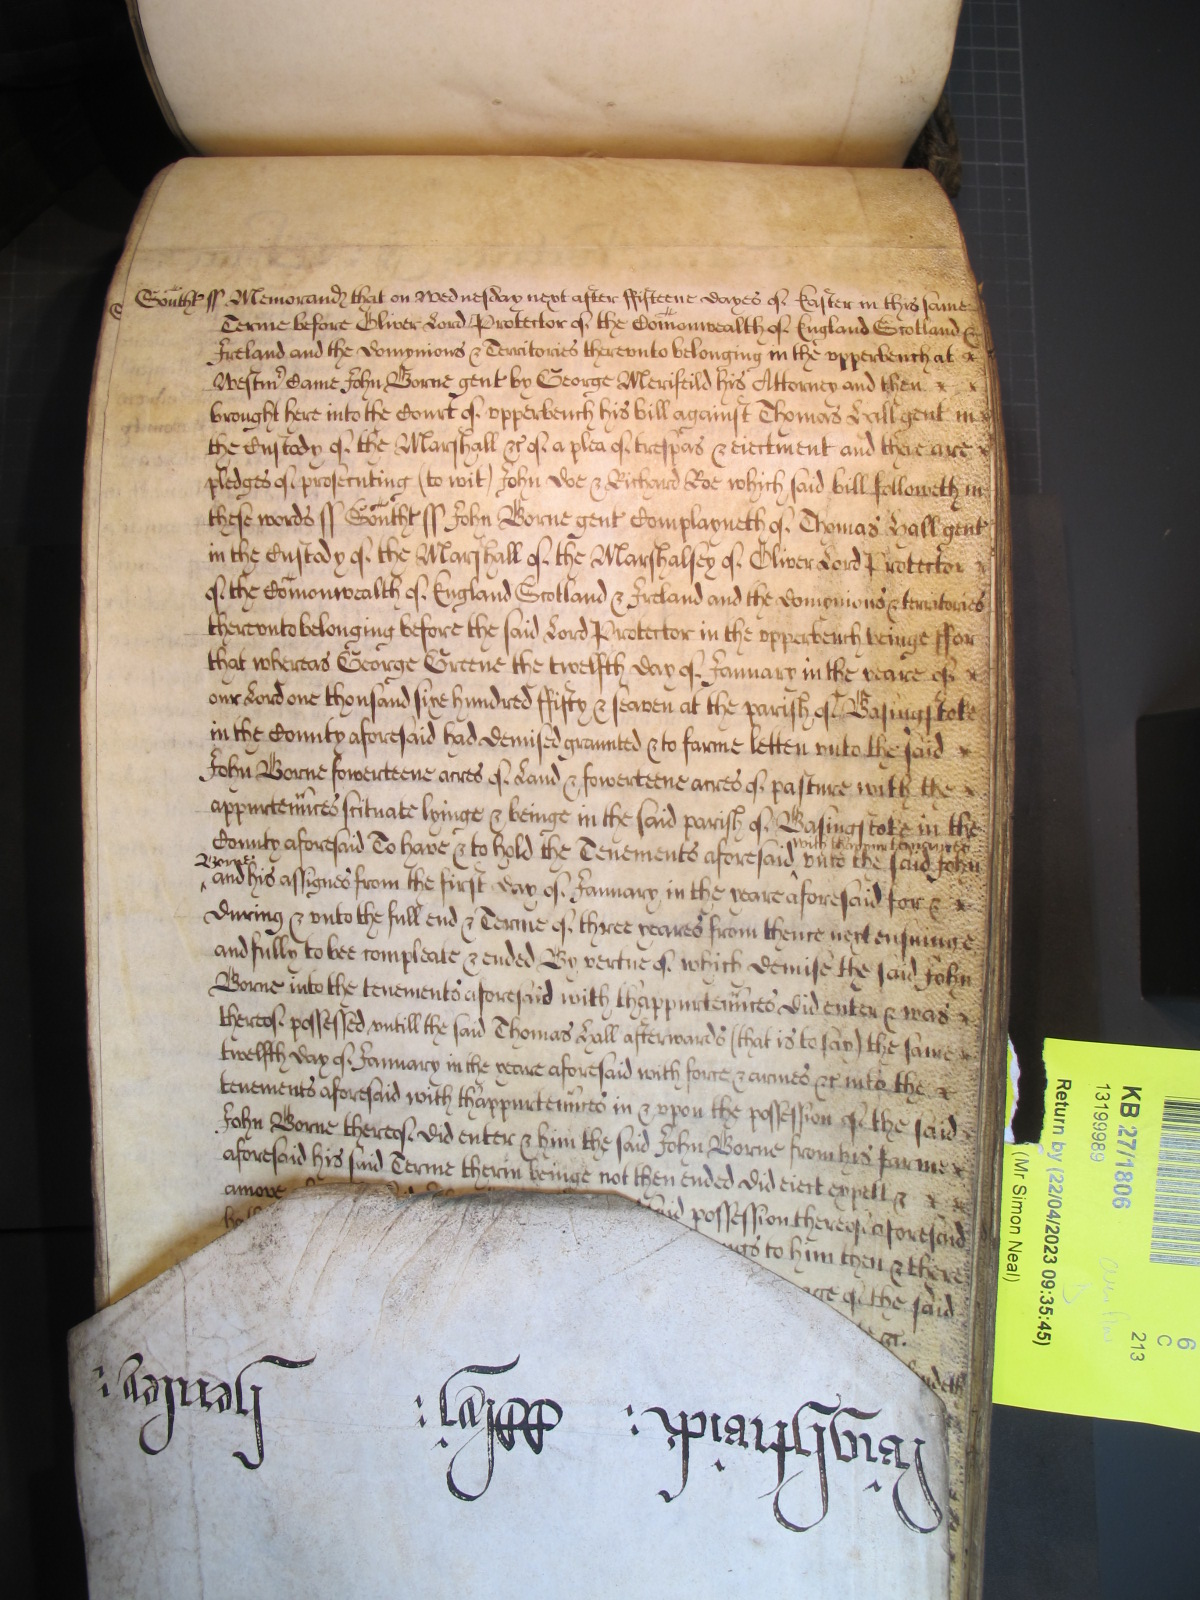 Southt ss Memorand that on Wednesday next after ffifteene dayes of Easter in this same
Terme before Oliver Lord Protector of the Comonwealth of England Scotland &
Ireland and the domynions & Territories therevnto belonging in the vpperbench at
Westmr Came John Borne gent by George Merifeild his Attorney and then
brought here into the Court of vpperbench his bill against Thomas Hall gent in
the Custody of the Marshall &c of a plea of trespas & eiectment and there are
pledges of prosecuting (to wit) John Doe & Richard Roe which said bill followeth in
these words ss Southt ss John Borne gent Complayneth of Thomas Hall gent
in the Custody of the Marshall of the Marshalsey of Oliver Lord Protector
of the Comonwealth of England Scotland & Ireland and the domynions & territories
therevnto belonging before the said Lord Protector in the vpperbench beinge ffor
that whereas George Greene the twelfth day of January in the yeare of
our Lord one thousand sixe hundred ffifty & seaven at the parish of Basingstoke
in the County aforesaid had demised graunted & to farme letten vnto the said
John Borne fowerteene acres of Land & fowerteene acres of pasture with the
appurtennces scituate lyinge & beinge in the said parish of Basingstoke in the
County aforesaid To have & to hold the Tenements aforesaid with thappurtennces vnto the said John
Borne and his assignes from the first day of January in the yeare aforesaid for &
during & vnto the full end & Terme of three yeares from thence next ensuinge
and fully to bee compleate & ended By vertue of which demise the said John
Borne into the tenements aforesaid with thappurtennces did enter & was
thereof possessed vntill the said Thomas Hall afterwards (that is to say) the same
twelfth day of January in the yeare aforesaid with force & armes &c into the
tenements aforesaid with thappurtennces in & vpon the possession of the said
John Borne thereof did enter & him the said John Borne from his farme
aforesaid his said Terme therin beinge not then ended did eiect expell &
amove
said possession thereof aforesaid
to him then & there
of the said
&c.
Henley:
Wigh:
KB 27/1806
13199989
Return by (22/04/2023 09:35:45)
(Mr Simon Neal)
6
C
213